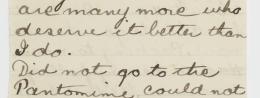 are many more who
deserve it better than
I do.
Did not go to the
Pantomime, could not